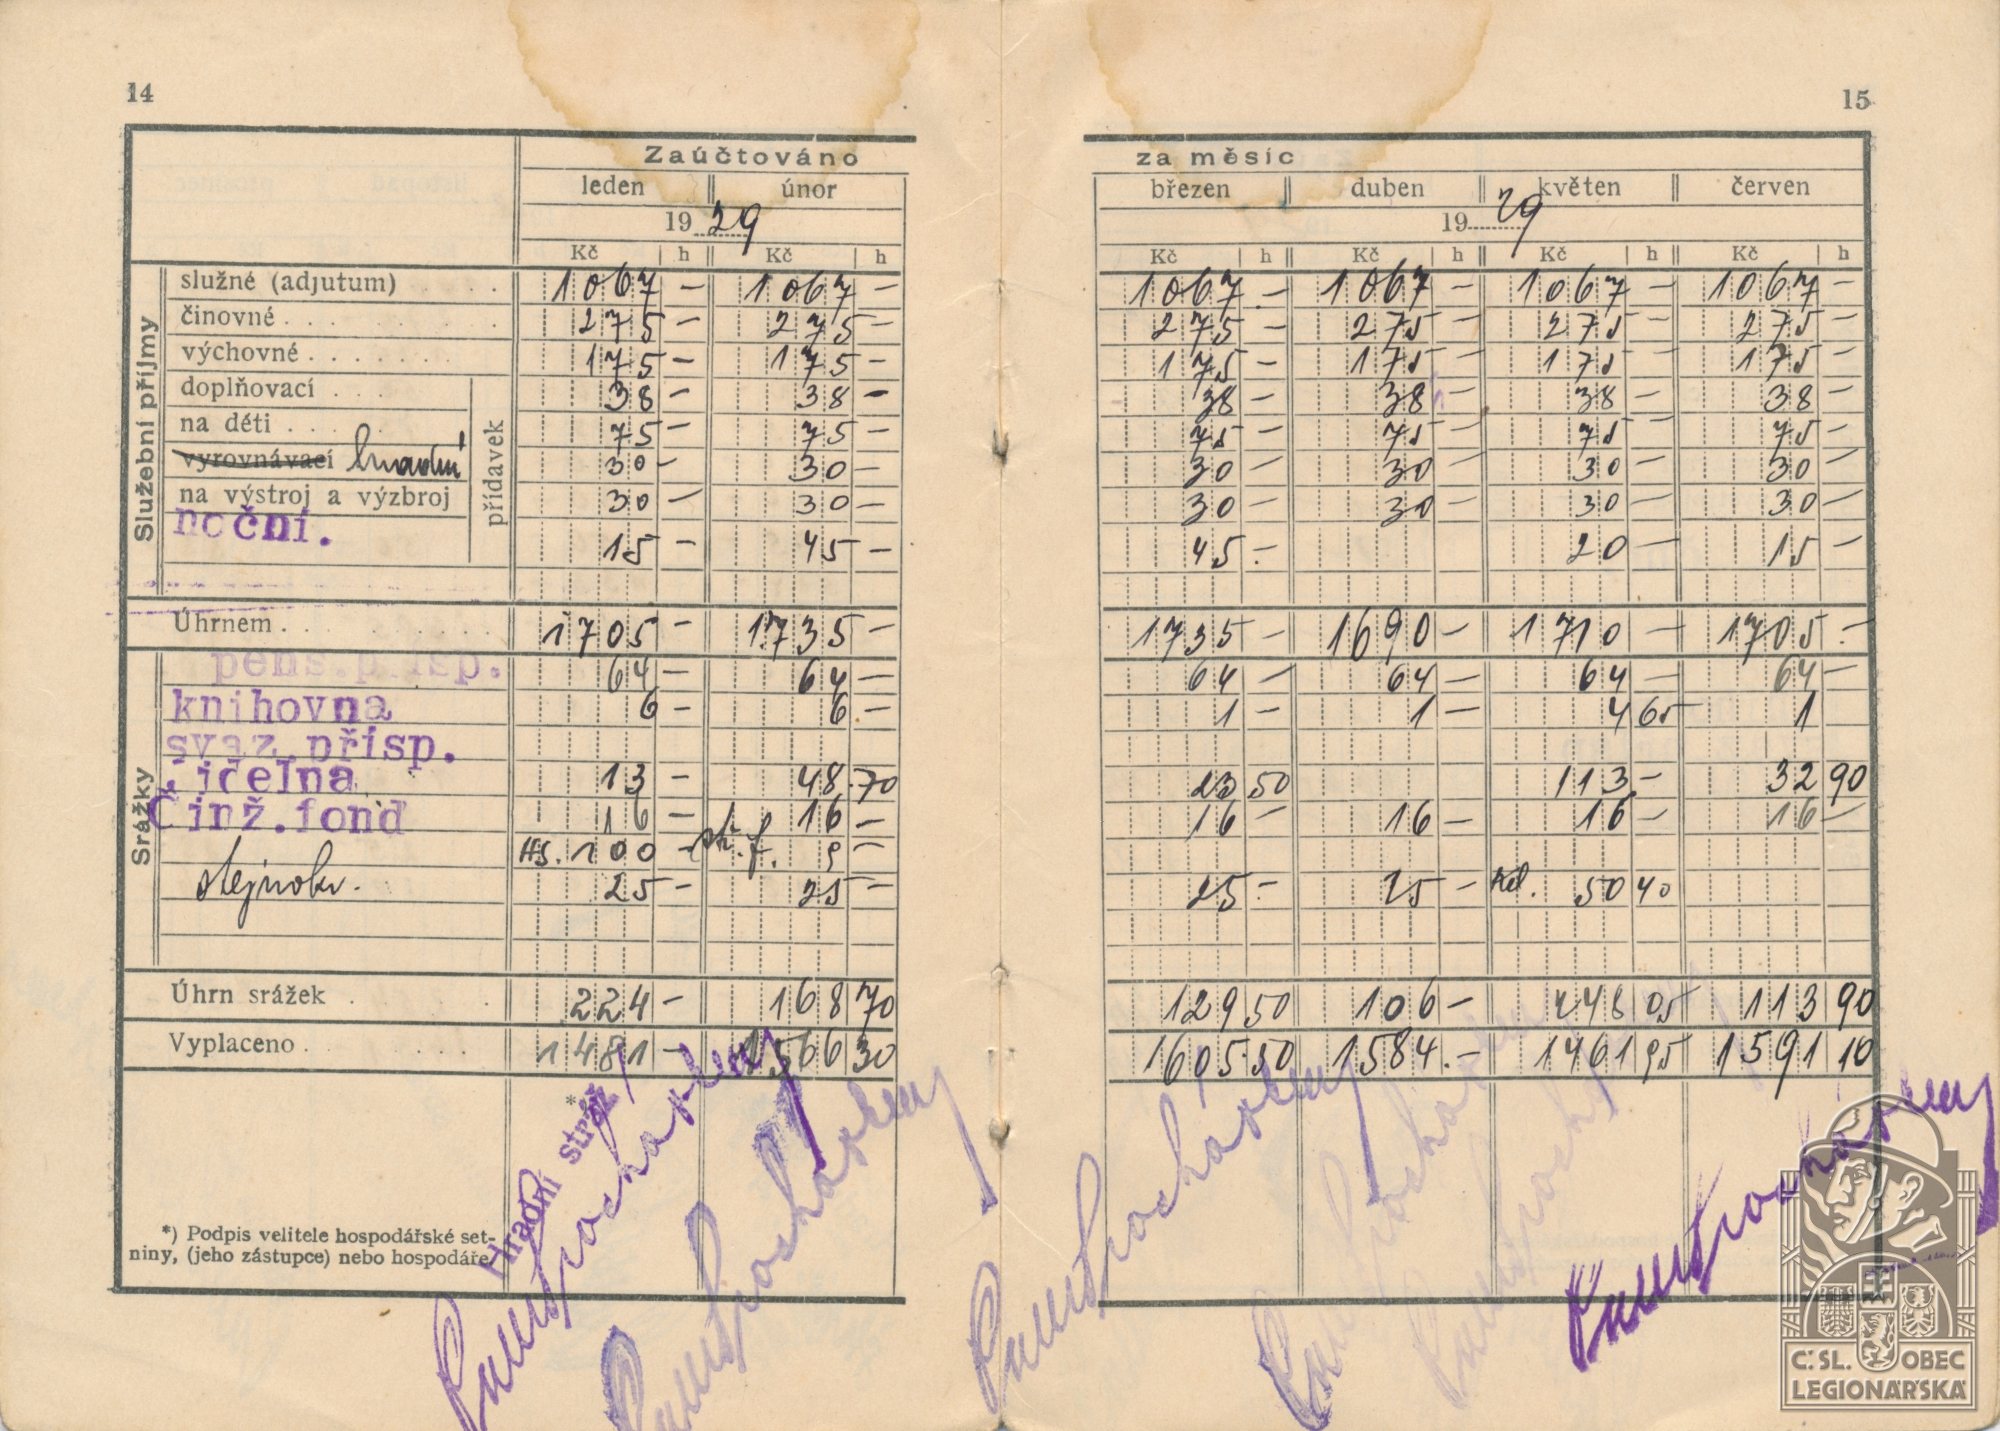 14
15
Zaúčtováno za měsíc
leden únor březen duben květen červen
1929 1929
Kč h Kč h Kč h Kč h Kč h Kč h
Služební příjmy
přídavek
služné (adjutum) 1067 – 1067 – 1067 – 1067 – 1067 – 1067 –
činovné 275 – 275 – 275 – 275 – 275 – 275 –
výchovné 175 – 175 – 175 – 175 – 175 – 175 –
doplňovací 38 – 38 – 38 – 38 – 38 – 38 –
na děti 75 – 75 – 75 – 75 – 75 – 75 –
vyrovnávací 30 – 30 – 30 – 30 – 30 – 30 –
na výstroj a výzbroj 30 – 30 – 30 – 30 – 30 – 30 –
noční. 15 – 45 – 45 – 20 – 15 –
Úhrnem 1705 – 1735 – 1735 – 1690 – 1710 – 1705 –
Srážky
pens.přisp. 64 – 64 – 64 – 64 – 64 – 64 –
knihovna 6 – 6 – 1 – 1 – 4 65 1
svaz.přisp.
jídelna 13 – 48.70 23 50 113 – 32 90
Činž.fond 16 – 16 – 16 – 16 – 16 – 16 –
100 – 9 –
stejnokr. 25 – 25 – 25 – 25 – 50 40
Úhrn srážek 224 – 168 70 129 50 106 – 248 05 113 90
Vyplaceno 1481 – 1566 30 1605.50 1584. – 1461 95 1591 10
*
Hradní stráž
*) Podpis velitele hospodářské set-
niny, (jeho zástupce) nebo hospodáře.
Č.SL. OBEC
LEGIONÁŘSKÁ